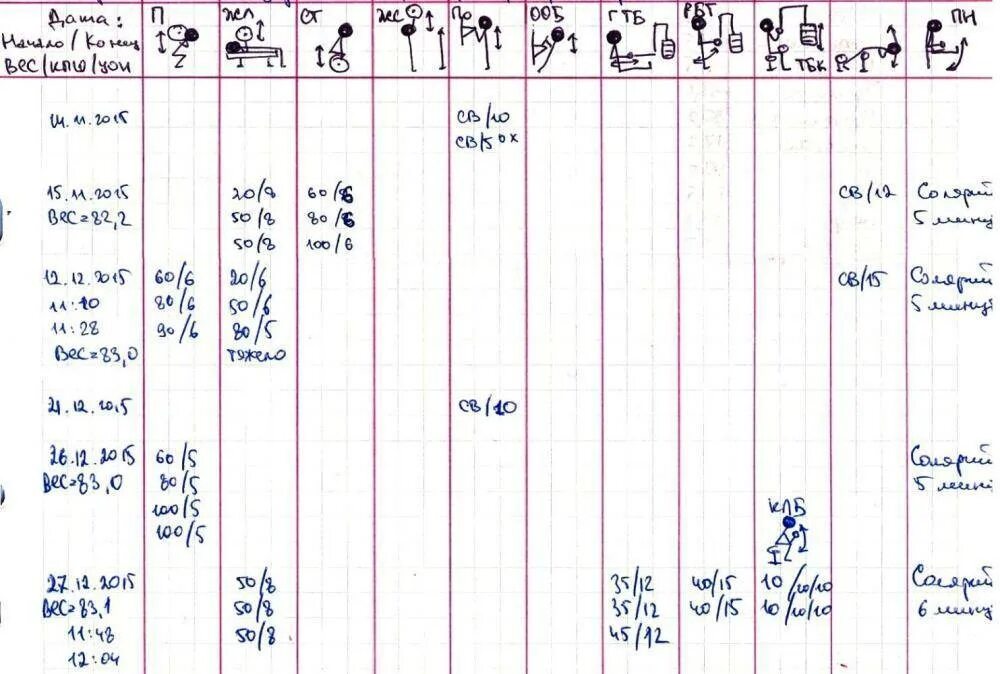 Дата: П ЖЛ СТ ЖС По ООБ ГТБ РБТ ПН
Начало / Конец
ВЕС/КПШ/УОИ ТБК
14.11.2015 СВ/10
СВ/5 0х
15.11.2015 20/8 60/6 СВ/12 Солярий
ВЕС=82,2 50/8 80/6 5 минут
50/8 100/6
12.12.2015 60/6 20/6 СВ/15 Солярий
11:10 80/6 50/6 5 минут
11:28 90/6 80/5
ВЕС=83,0 тяжело
21.12.2015 СВ/10
26.12.2015 60/5 Солярий
ВЕС=83,0 80/5 5 мин
100/5 КЛБ
100/5
27.12.2015 50/8 35/12 40/15 10/10/10 Солярий
ВЕС=83,1 50/8 35/12 40/15 10/10/10 6 минут
11:48 50/8 45/12
12:04